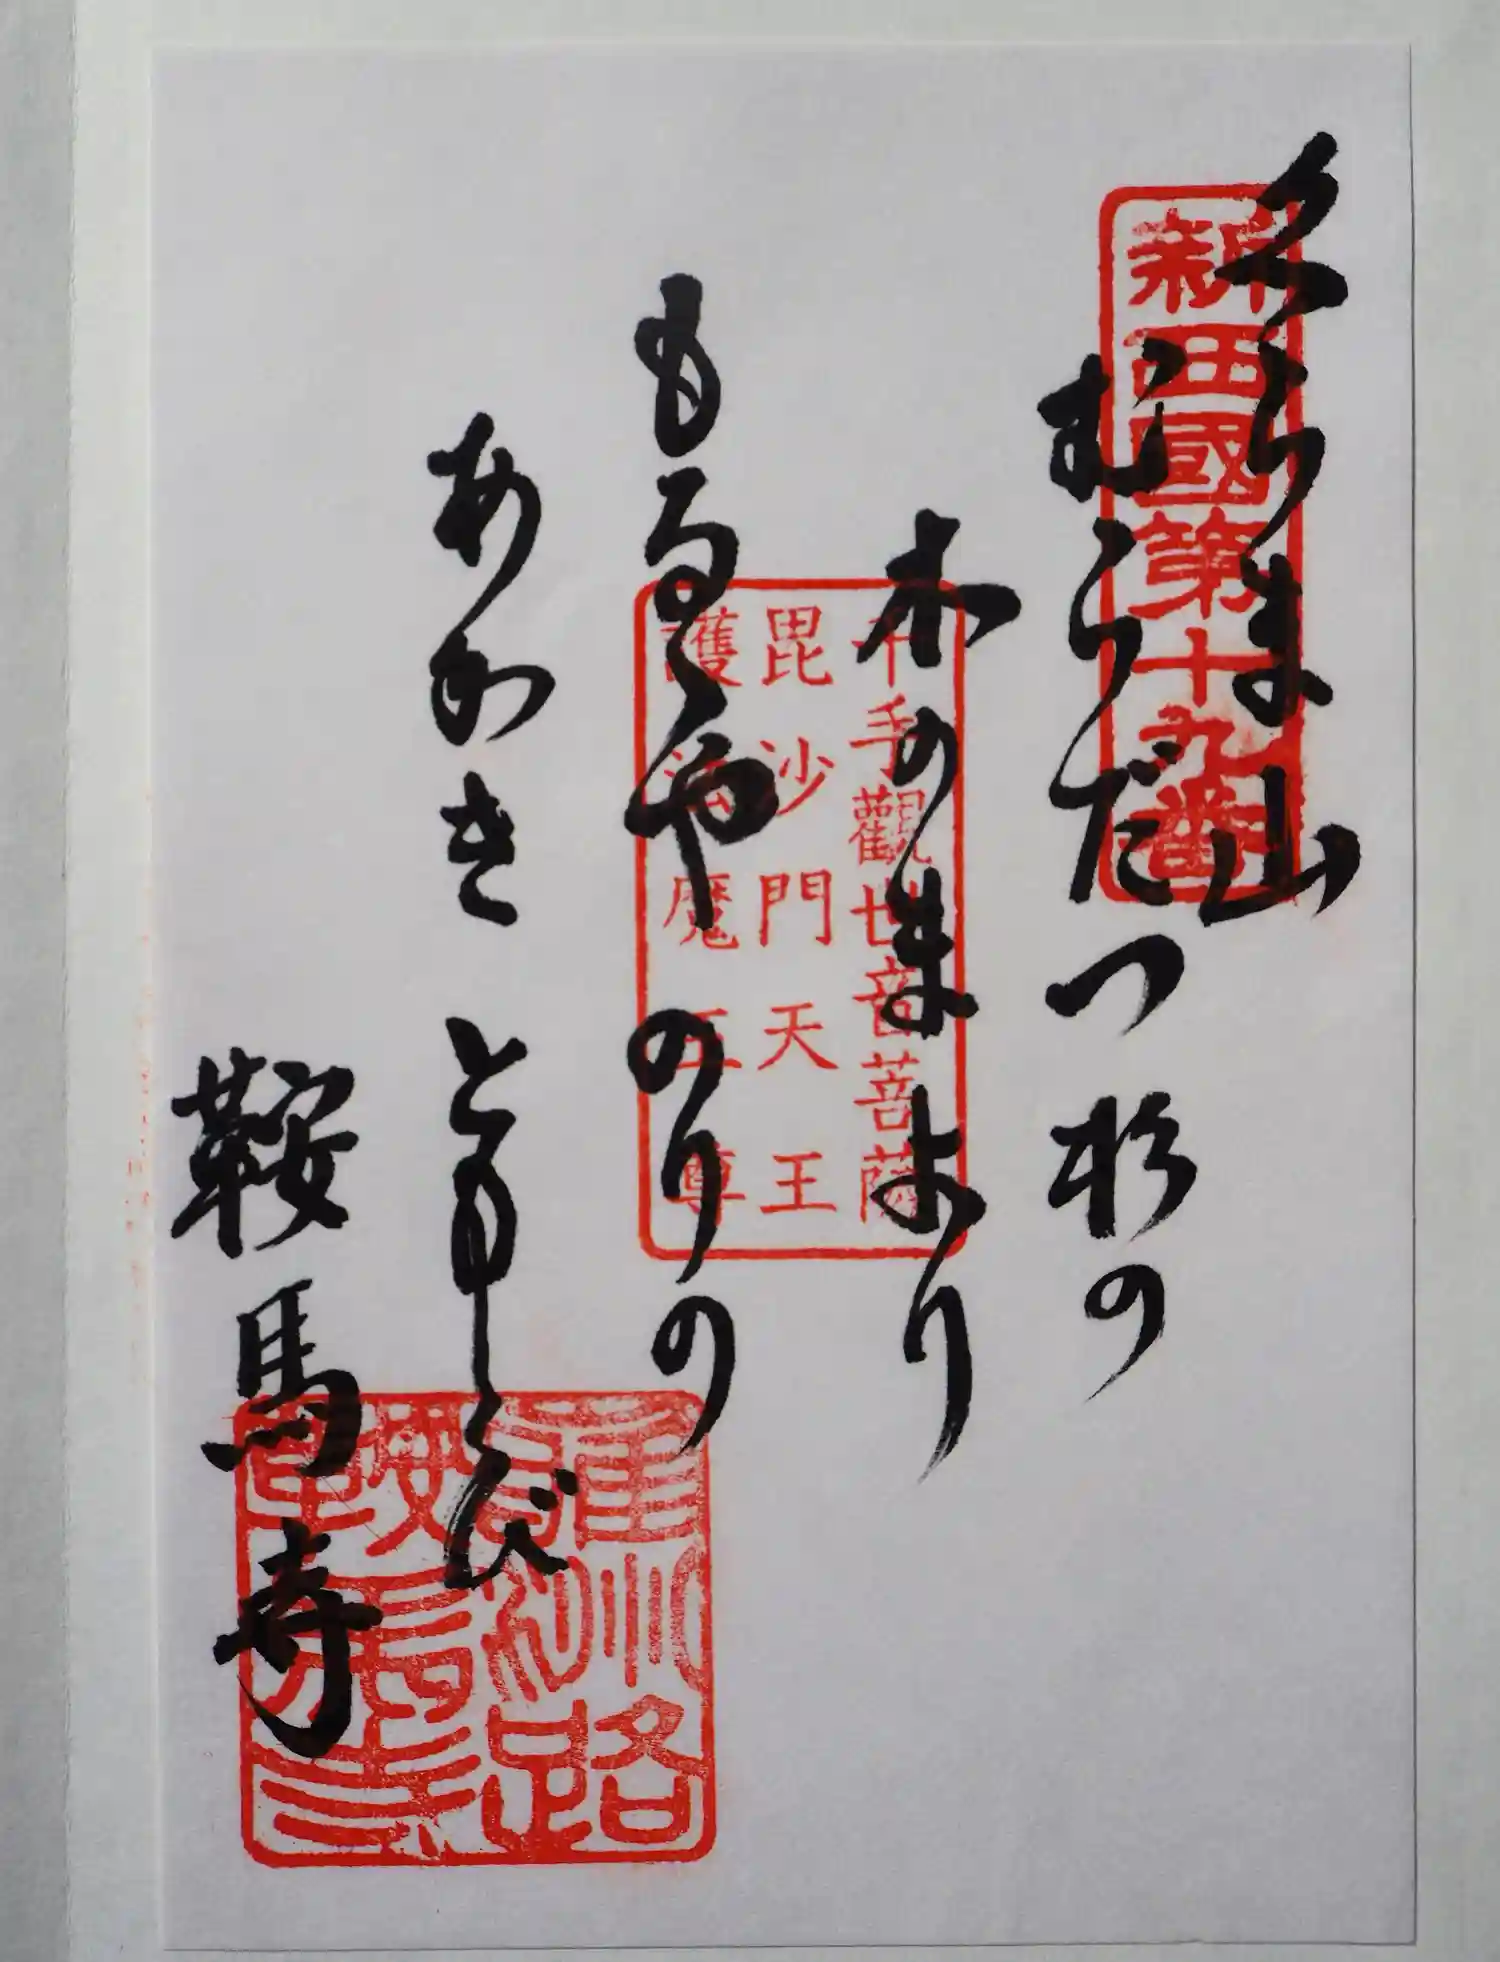 くらま山
むらだつ杉の
木のまより
もるゝや のりの
あかき ともしび
鞍馬寺
新西國第十九番
千手觀世音菩薩
毘沙門天王
護法魔王尊